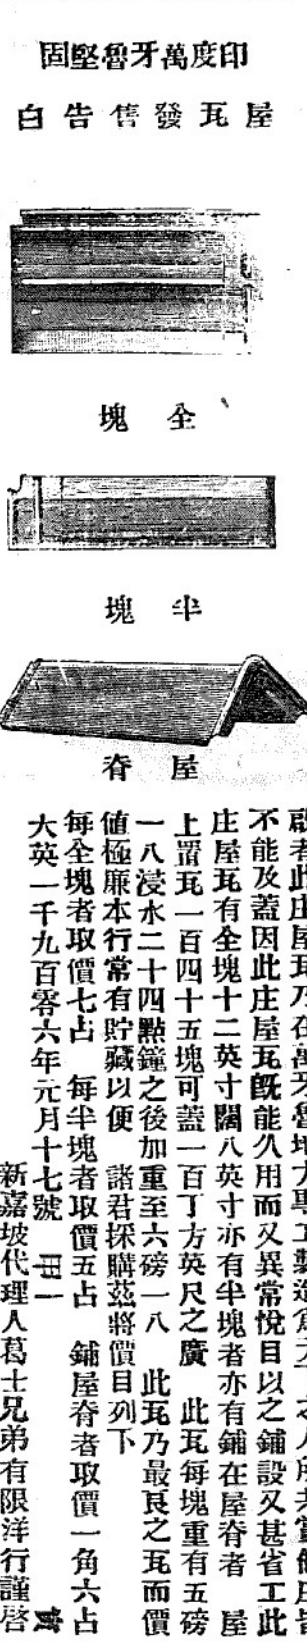 印度萬牙魯堅固
屋瓦發售告白
全塊
半塊
屋脊
者此庄屋瓦乃在萬牙魯地方專工製造為天下之人所共賞他庄皆
不能及蓋因此庄屋瓦既能久用而又異常悅目以之鋪設又甚省工此
庄屋瓦有全塊十二英寸闊八英寸亦有半塊者亦有鋪在屋脊者 屋
上置瓦一百四十五塊可蓋一百丁方英尺之廣 此瓦每塊重有五磅
一八浸水二十四點鐘之後加重至六磅一八 此瓦乃最良之瓦而價
值極廉本行常有貯藏以便 諸君採購茲將價目列下
每全塊者取價七占 每半塊者取價五占 鋪屋脊者取價一角六占
大英一千九百零六年元月十七號
新嘉坡代理人葛士兄弟有限洋行謹啓